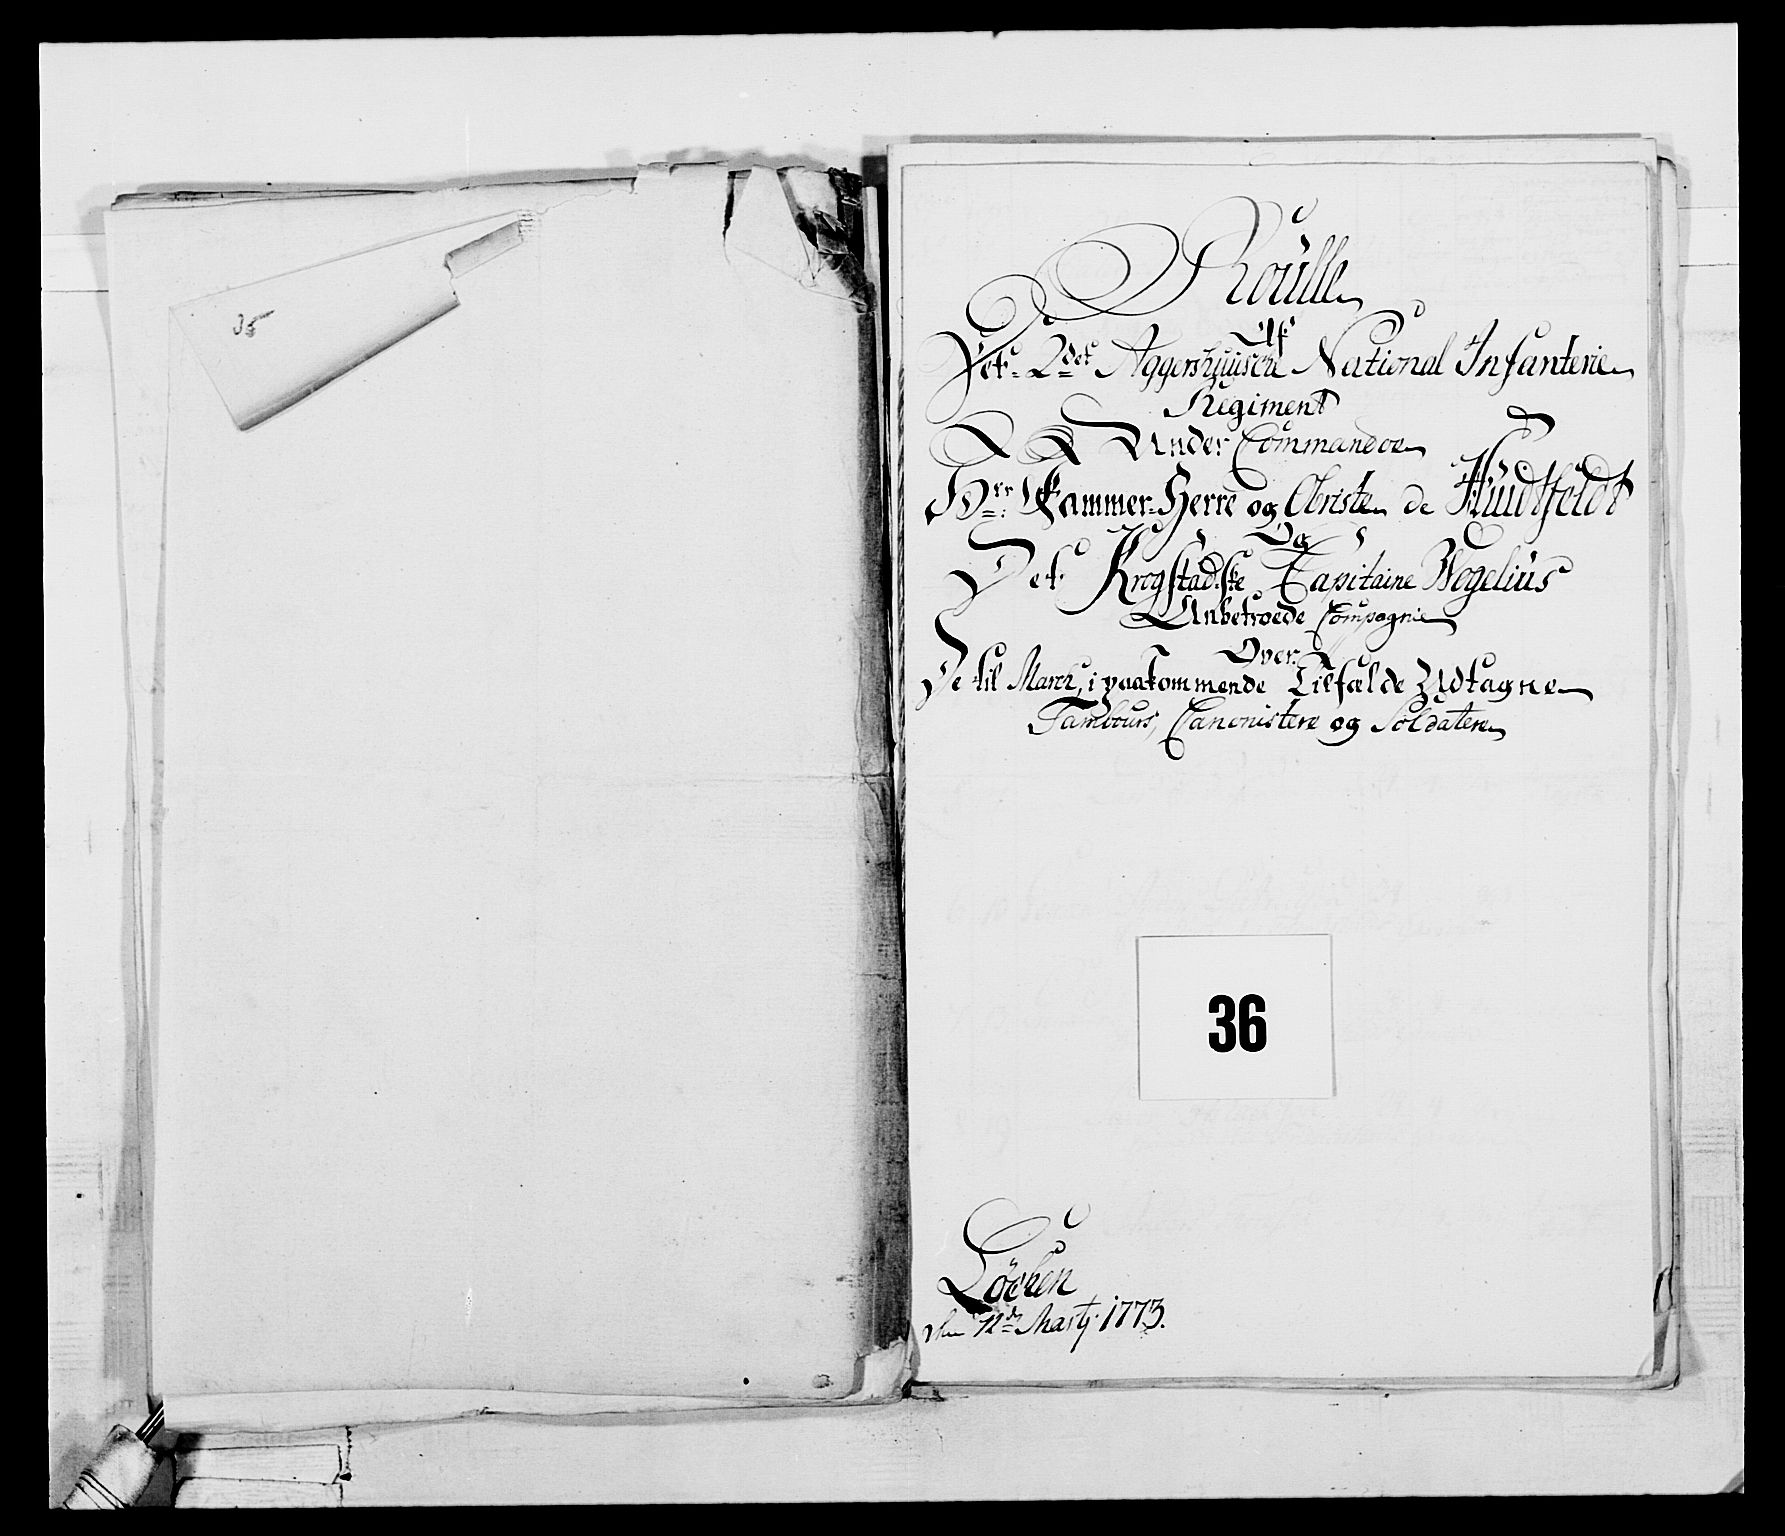 35
Roulle
Af
Det 2det Aggershuusche National Infanterie
Regiment
Under Commandoe
Hrr: Kammer-Herre og Obriste de Huidtfeldt
Og
Det Krogstadske Capitaine Wegelius
Anbetroede Compagnie
Over
De til March, i paakommende Tilfælde Udtagne
Tambours, Canonistere og Soldatere
36
Löchen
den 12de Martj. 1773.